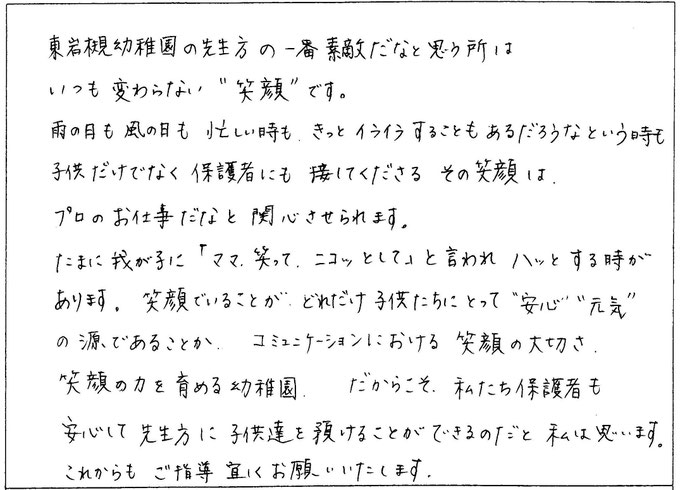 東岩槻幼稚園の先生方の一番素敵だなと思う所は
いつも変わらない"笑顔"です。
雨の日も風の日も忙しい時も、きっとイライラすることもあるだろうなという時も
子供だけでなく保護者にも接してくださるその笑顔は、
プロのお仕事だなと関心させられます。
たまに我が子に「ママ、笑って、ニコッとして」と言われハッとする時が
あります。笑顔でいることが、どれだけ子供たちにとって"安心""元気"
の源であることか、コミュニケーションにおける笑顔の大切さ、
笑顔の力を育める幼稚園、だからこそ、私たち保護者も
安心して先生方に子供達を預けることができるのだと私は思います。
これからもご指導宜しくお願いいたします。